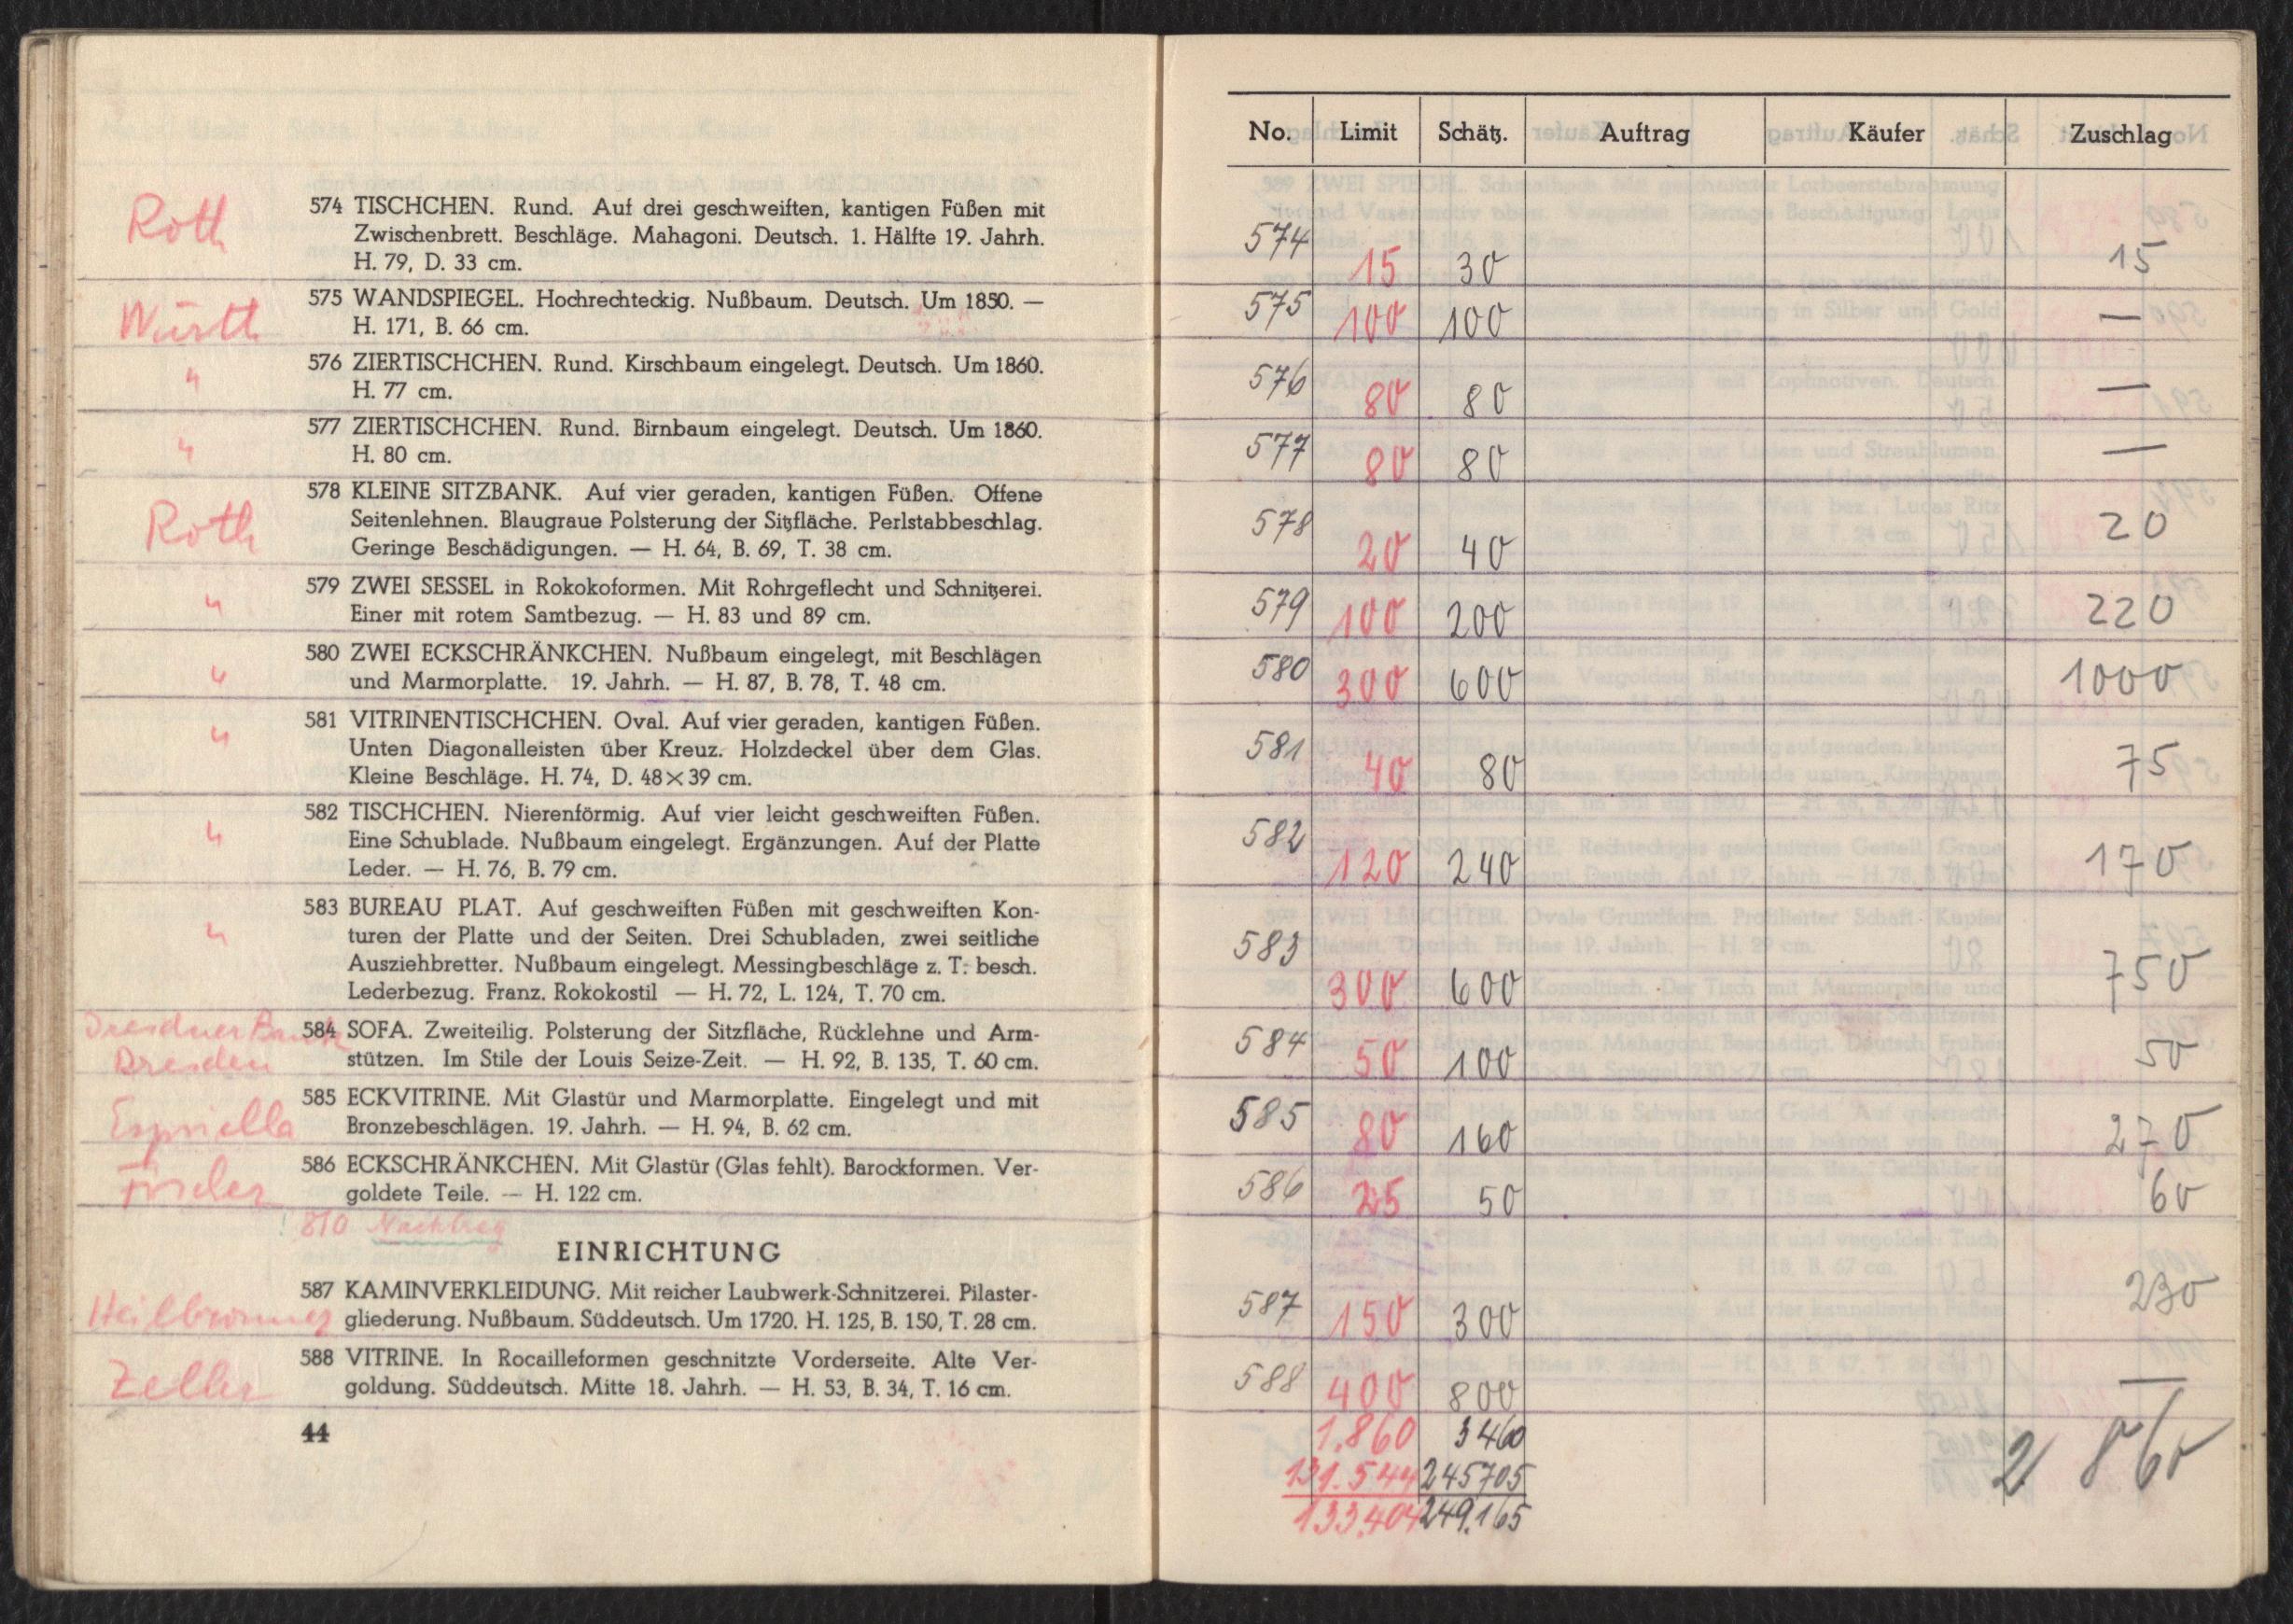 Roth
574 TISCHCHEN. Rund. Auf drei geschweiften, kantigen Füßen mit
Zwischenbrett. Beschläge. Mahagoni. Deutsch. 1. Hälfte 19. Jahrh.
H. 79, D. 33 cm.
Württ
575 WANDSPIEGEL. Hochrechteckig. Nußbaum. Deutsch. Um 1850. —
H. 171, B. 66 cm.
"
576 ZIERTISCHCHEN. Rund. Kirschbaum eingelegt. Deutsch. Um 1860.
H. 77 cm.
"
577 ZIERTISCHCHEN. Rund. Birnbaum eingelegt. Deutsch. Um 1860.
H. 80 cm.
Roth
578 KLEINE SITZBANK. Auf vier geraden, kantigen Füßen. Offene
Seitenlehnen. Blaugraue Polsterung der Sitzfläche. Perlstabbeschlag.
Geringe Beschädigungen. — H. 64, B. 69, T. 38 cm.
"
579 ZWEI SESSEL in Rokokoformen. Mit Rohrgeflecht und Schnitzerei.
Einer mit rotem Samtbezug. — H. 83 und 89 cm.
"
580 ZWEI ECKSCHRÄNKCHEN. Nußbaum eingelegt, mit Beschlägen
und Marmorplatte. 19. Jahrh. — H. 87, B. 78, T. 48 cm.
"
581 VITRINENTISCHCHEN. Oval. Auf vier geraden, kantigen Füßen.
Unten Diagonalleisten über Kreuz. Holzdeckel über dem Glas.
Kleine Beschläge. H. 74, D. 48×39 cm.
"
582 TISCHCHEN. Nierenförmig. Auf vier leicht geschweiften Füßen.
Eine Schublade. Nußbaum eingelegt. Ergänzungen. Auf der Platte
Leder. — H. 76, B. 79 cm.
"
583 BUREAU PLAT. Auf geschweiften Füßen mit geschweiften Kon-
turen der Platte und der Seiten. Drei Schubladen, zwei seitliche
Ausziehbretter. Nußbaum eingelegt. Messingbeschläge z. T. besch.
Lederbezug. Franz. Rokokostil — H. 72, L. 124, T. 70 cm.
Dresdner Bank
Dresden
584 SOFA. Zweiteilig. Polsterung der Sitzfläche, Rücklehne und Arm-
stützen. Im Stile der Louis Seize-Zeit. — H. 92, B. 135, T. 60 cm.
585 ECKVITRINE. Mit Glastür und Marmorplatte. Eingelegt und mit
Bronzebeschlägen. 19. Jahrh. — H. 94, B. 62 cm.
586 ECKSCHRÄNKCHEN. Mit Glastür (Glas fehlt). Barockformen. Ver-
goldete Teile. — H. 122 cm.
810 Nachtrag
EINRICHTUNG
Heilbronner
587 KAMINVERKLEIDUNG. Mit reicher Laubwerk-Schnitzerei. Pilaster-
gliederung. Nußbaum. Süddeutsch. Um 1720. H. 125, B. 150, T. 28 cm.
Zeller
588 VITRINE. In Rocailleformen geschnitzte Vorderseite. Alte Ver-
goldung. Süddeutsch. Mitte 18. Jahrh. — H. 53, B. 34, T. 16 cm.
44
No. Limit Schätz. Auftrag Käufer Zuschlag
574 15 30 15
575 100 100 —
576 80 80 —
577 80 80 —
578 20 40 20
579 100 200 220
580 300 600 1000
581 40 80 75
582 120 240 170
583 300 600 750
584 50 100 50
585 80 160 270
586 25 50 60
587 150 300 230
588 400 800 —
1.860 3460 2 860
131.544 245705
133.404 249.165